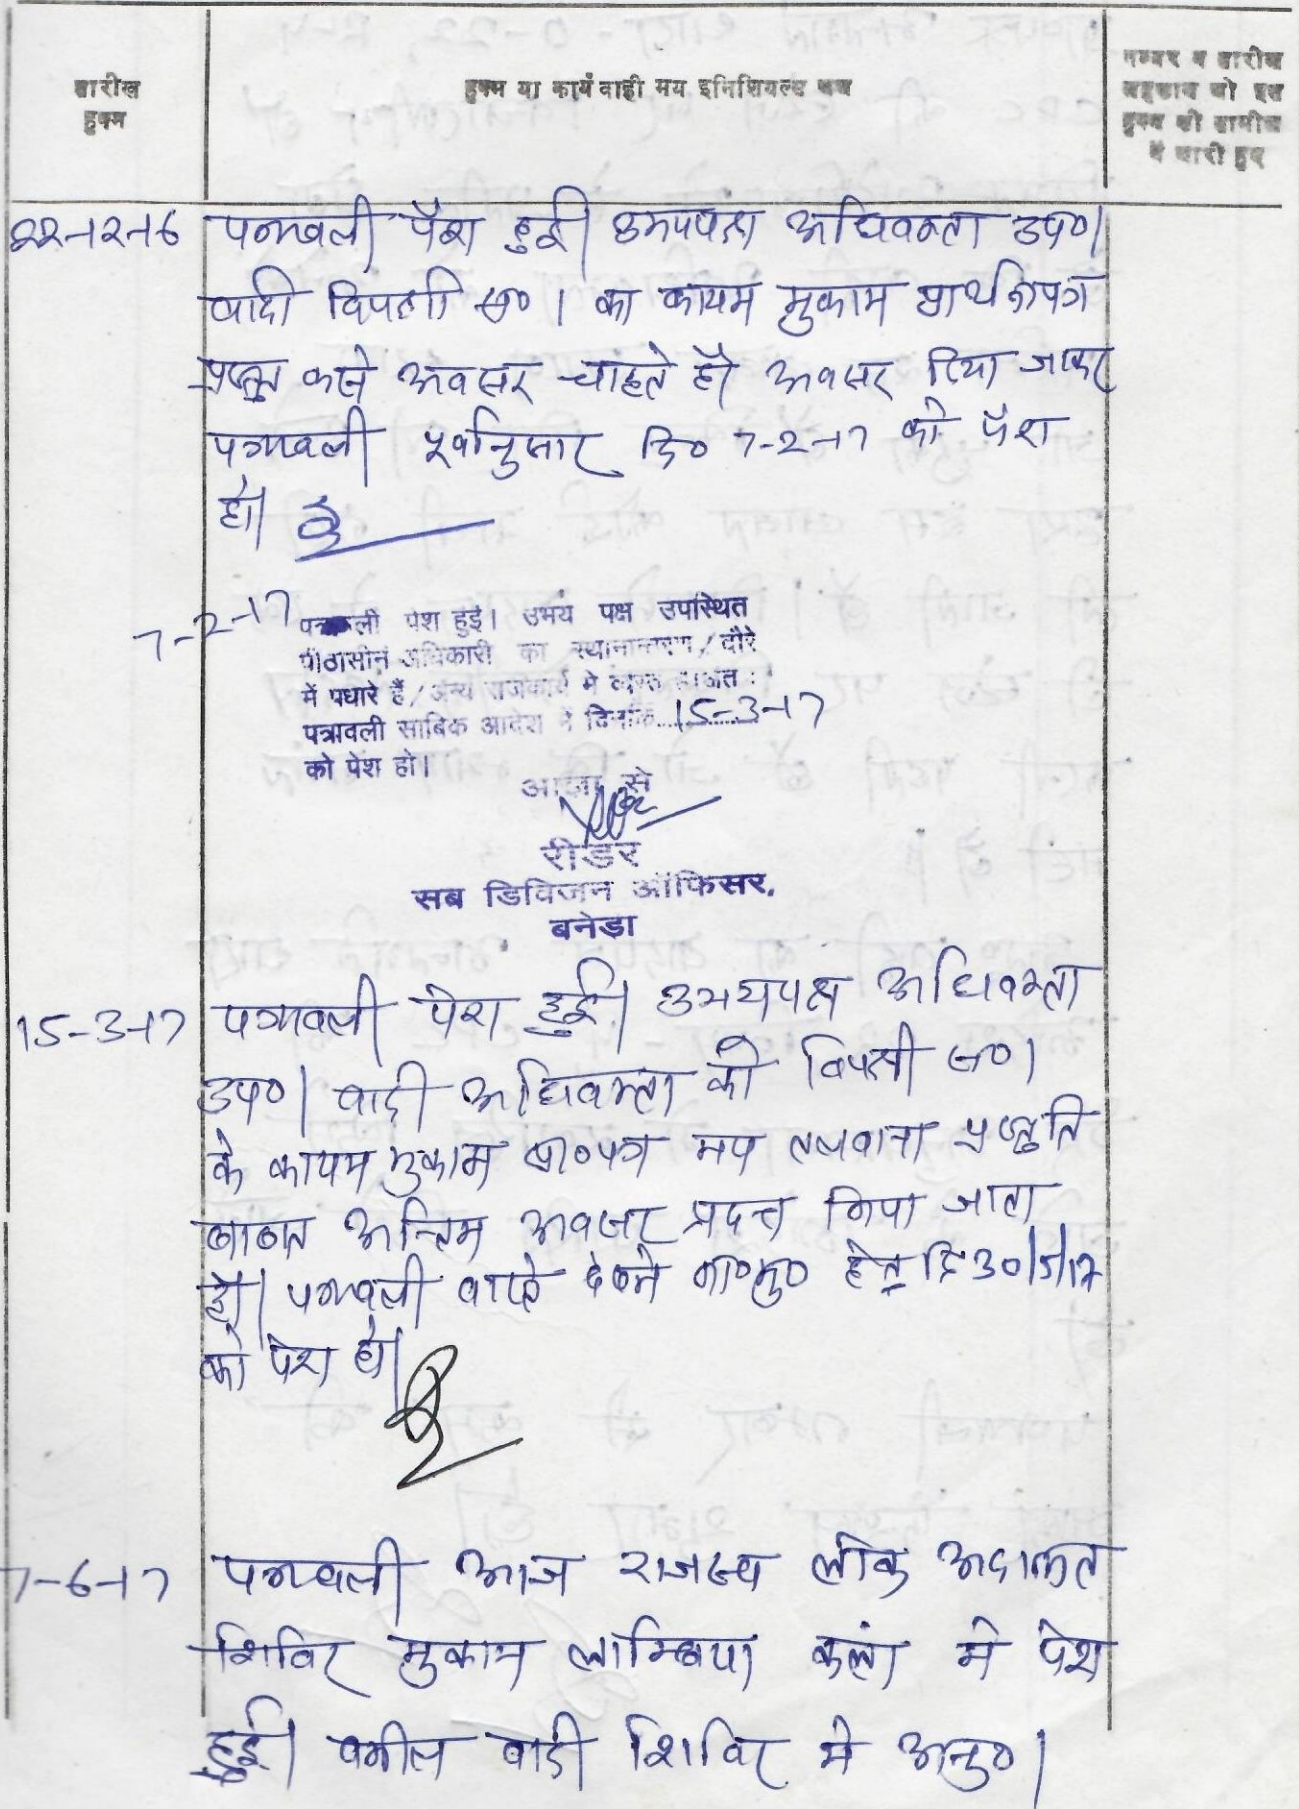 तारीख
हुक्म
हुक्म या कार्यवाही मय इनिशियल्स जज
नम्बर व तारीख
अहकाम जो इस
हुक्म की तामील
में जारी हुए
22-12-16 पत्रावली पेश हुई। उभयपक्ष अधिवक्ता उप०।
वादी विपक्षी सं० 1 का कायम मुकाम प्रार्थनापत्र
प्रस्तुत करने अवसर चाहते है। अवसर दिया जाकर
पत्रावली पूर्वानुसार दि० 7-2-17 को पेश
हो।
7-2-17 पत्रावली पेश हुई। उभय पक्ष उपस्थित
पीठासीन अधिकारी का स्थानान्तरण/दौरे
में पधारे हैं/अन्य राजकार्य में व्यस्त है। अतः
पत्रावली साबिक आदेश में दिनांक 15-3-17
को पेश हो।
आज्ञा से
रीडर
सब डिविजन ऑफिसर,
बनेडा
15-3-17 पत्रावली पेश हुई। उभयपक्ष अधिवक्ता
उप०। वादी अधिवक्ता को विपक्षी सं० 1
के कायम मुकाम प्रा०पत्र मय तलवाना प्रस्तुति
बाबत अन्तिम अवसर प्रदत्त किया जाता
है। पत्रावली वास्ते देखने का०मु० हेतु दि 30/5/17
को पेश हो।
7-6-17 पत्रावली आज राजस्व लोक अदालत
शिविर मुकाम लाम्बिया कलां मे पेश
हुई। वकील वादी शिविर मे अनु०।